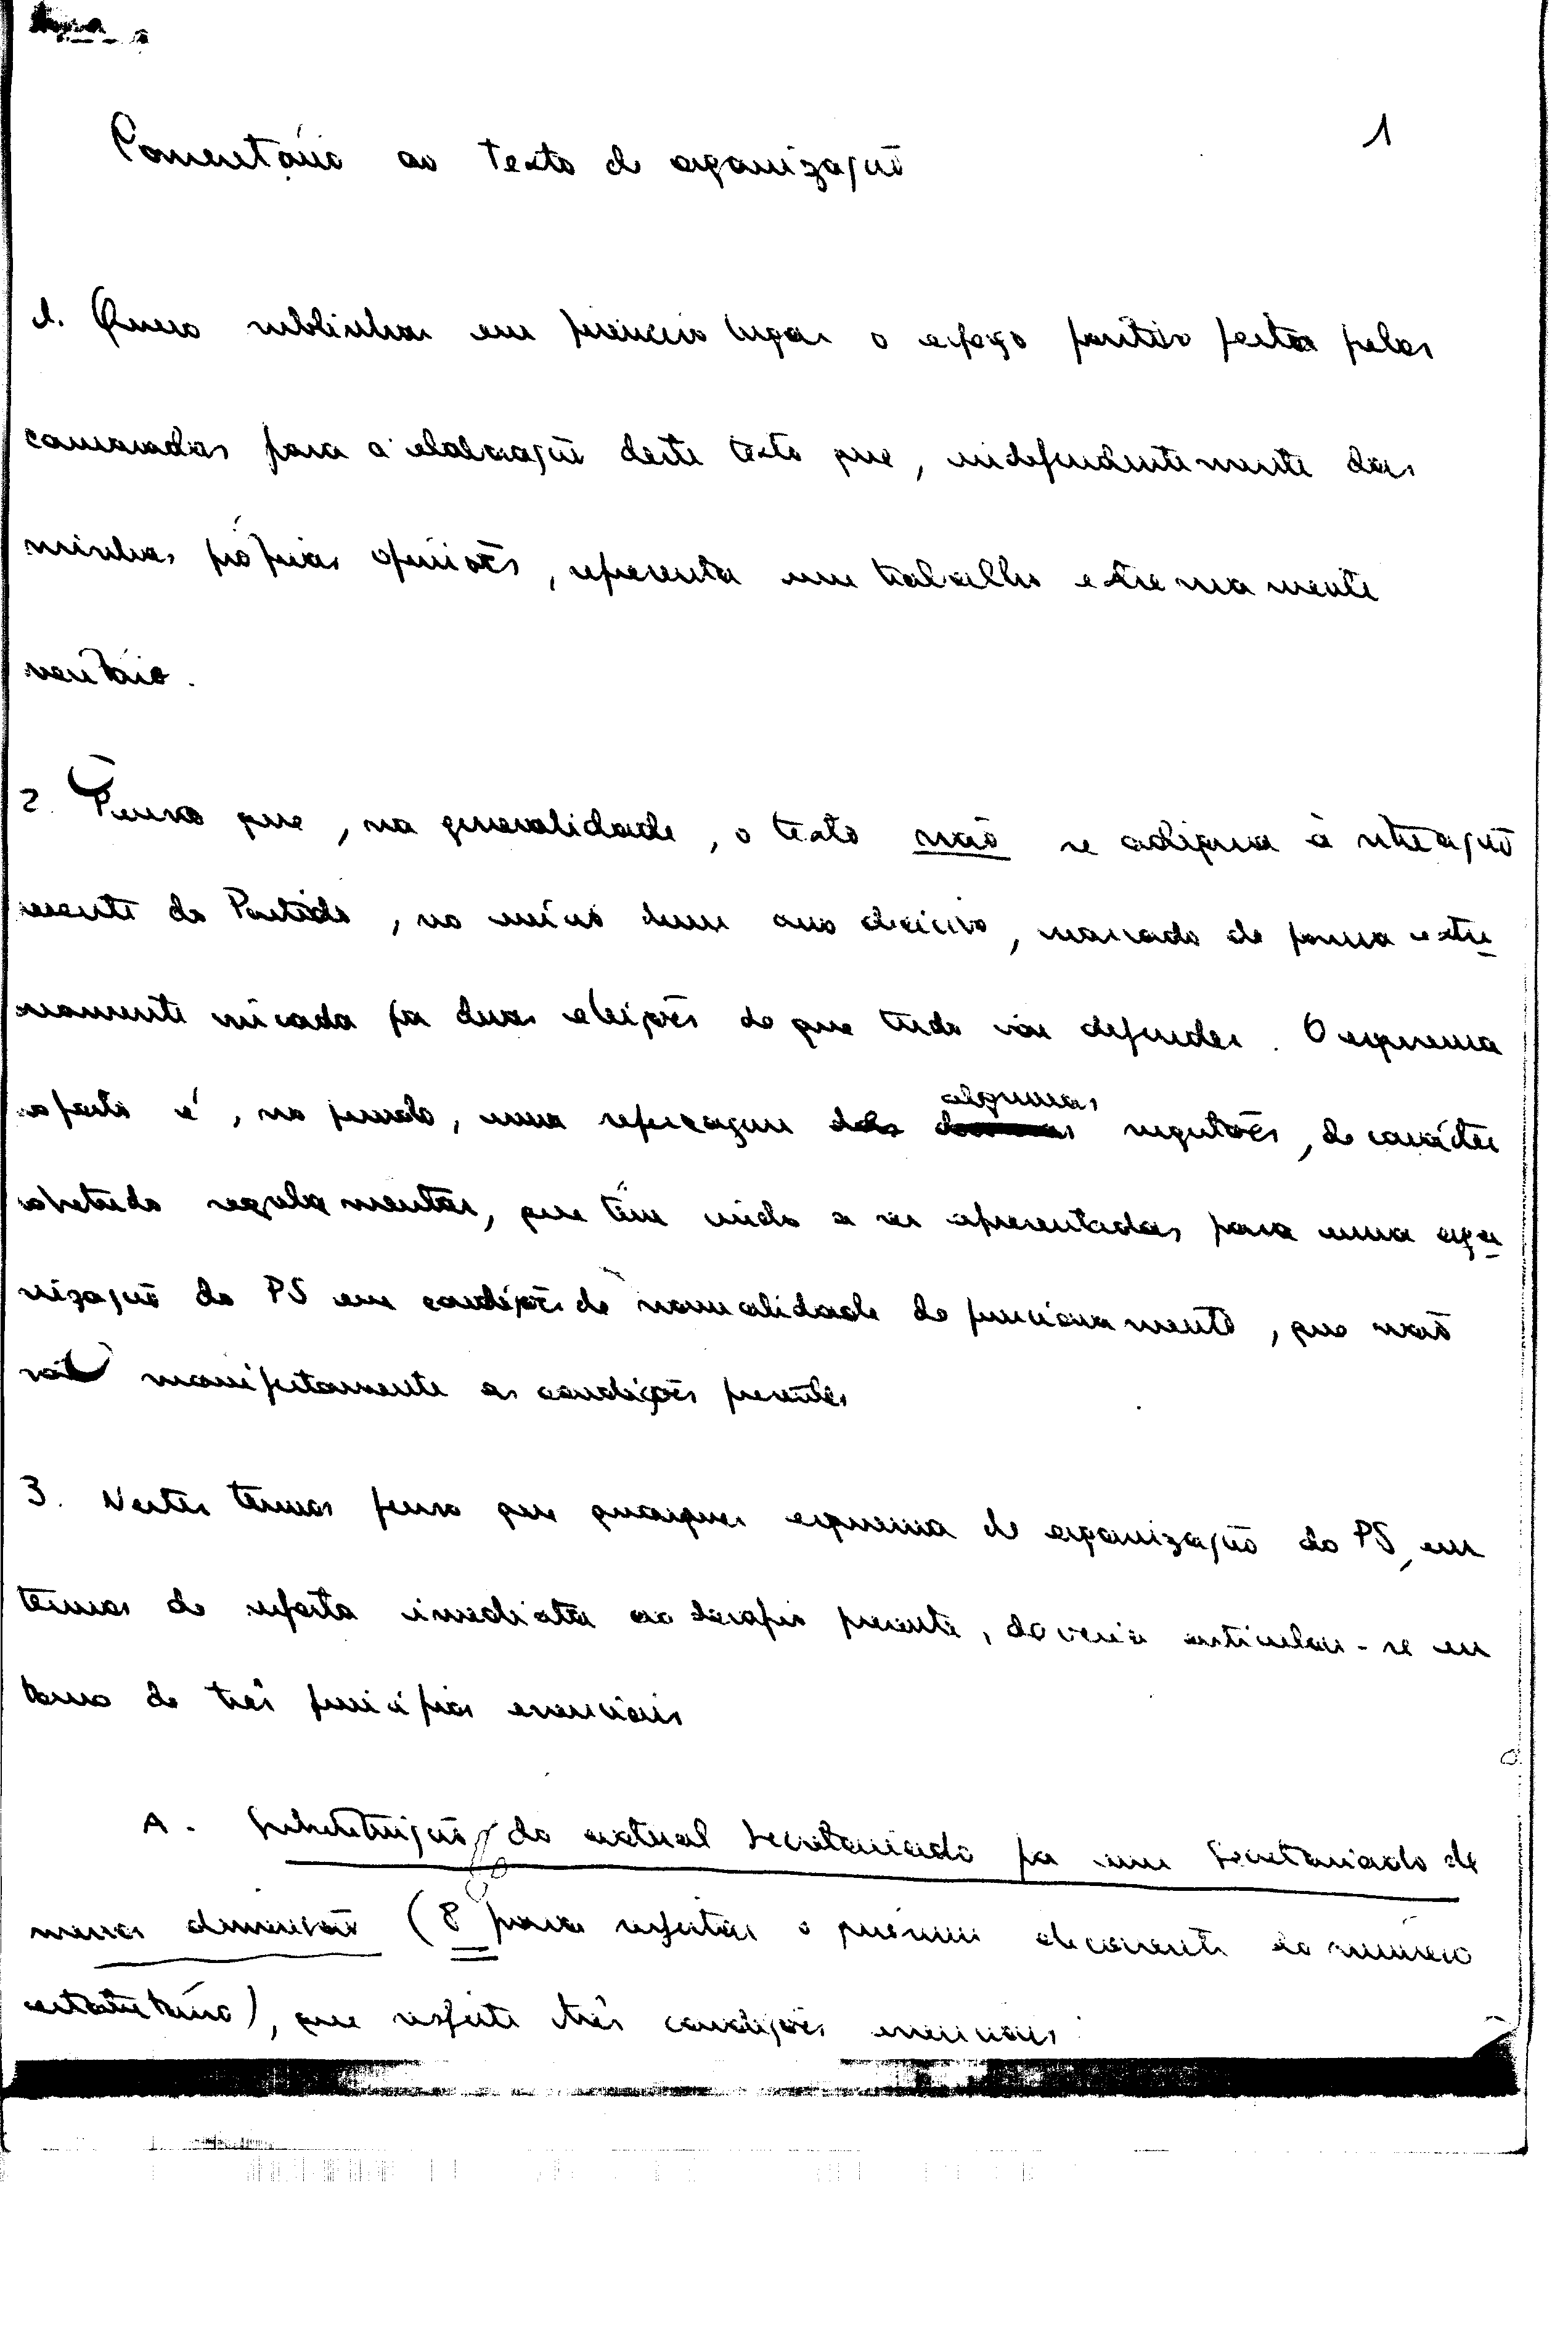 1
Comentário ao texto de organização
1. Quero sublinhar em primeiro lugar o esforço positivo feito pelos
camaradas para a elaboração deste texto que, independentemente das
minhas próprias opiniões, representa um trabalho extremamente
meritório.
2. Penso que, na generalidade, o texto não se adequa à situação
presente do Partido, no início dum ano decisivo, marcado de forma extre-
mamente vincada por duas eleições de que tudo vai depender. O esquema
proposto é, no fundo, uma repescagem de algumas sugestões, de carácter
sobretudo regulamentar, que têm vindo a ser apresentadas para uma orga-
nização do PS em condições de normalidade de funcionamento, que não
são manifestamente as condições presentes
3. Nestes termos penso que qualquer esquema de organização do PS, em
termos de resposta imediata ao desafio presente, deveria articular-se em
torno de três princípios essenciais
A. Substituição do actual Secretariado por um Secretariado de
menor dimensão (8 para respeitar o decorrente do número
estatutário), que respeite três condições essenciais: